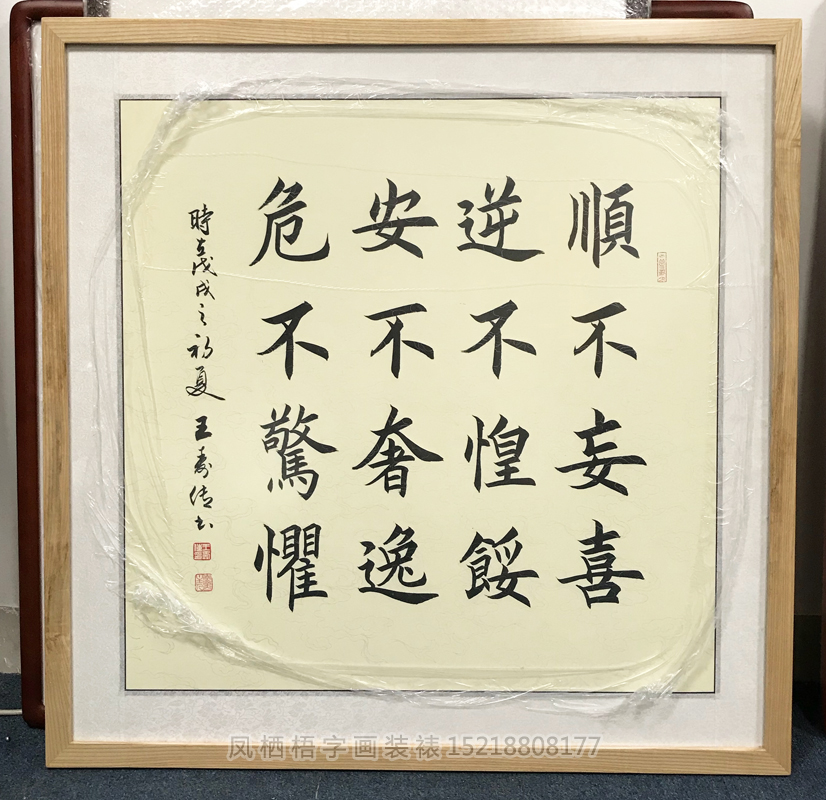 順不妄喜
逆不惶餒
安不奢逸
危不驚懼
時在戊戌之初夏 王壽儒书
凤栖梧字画装裱15218808177